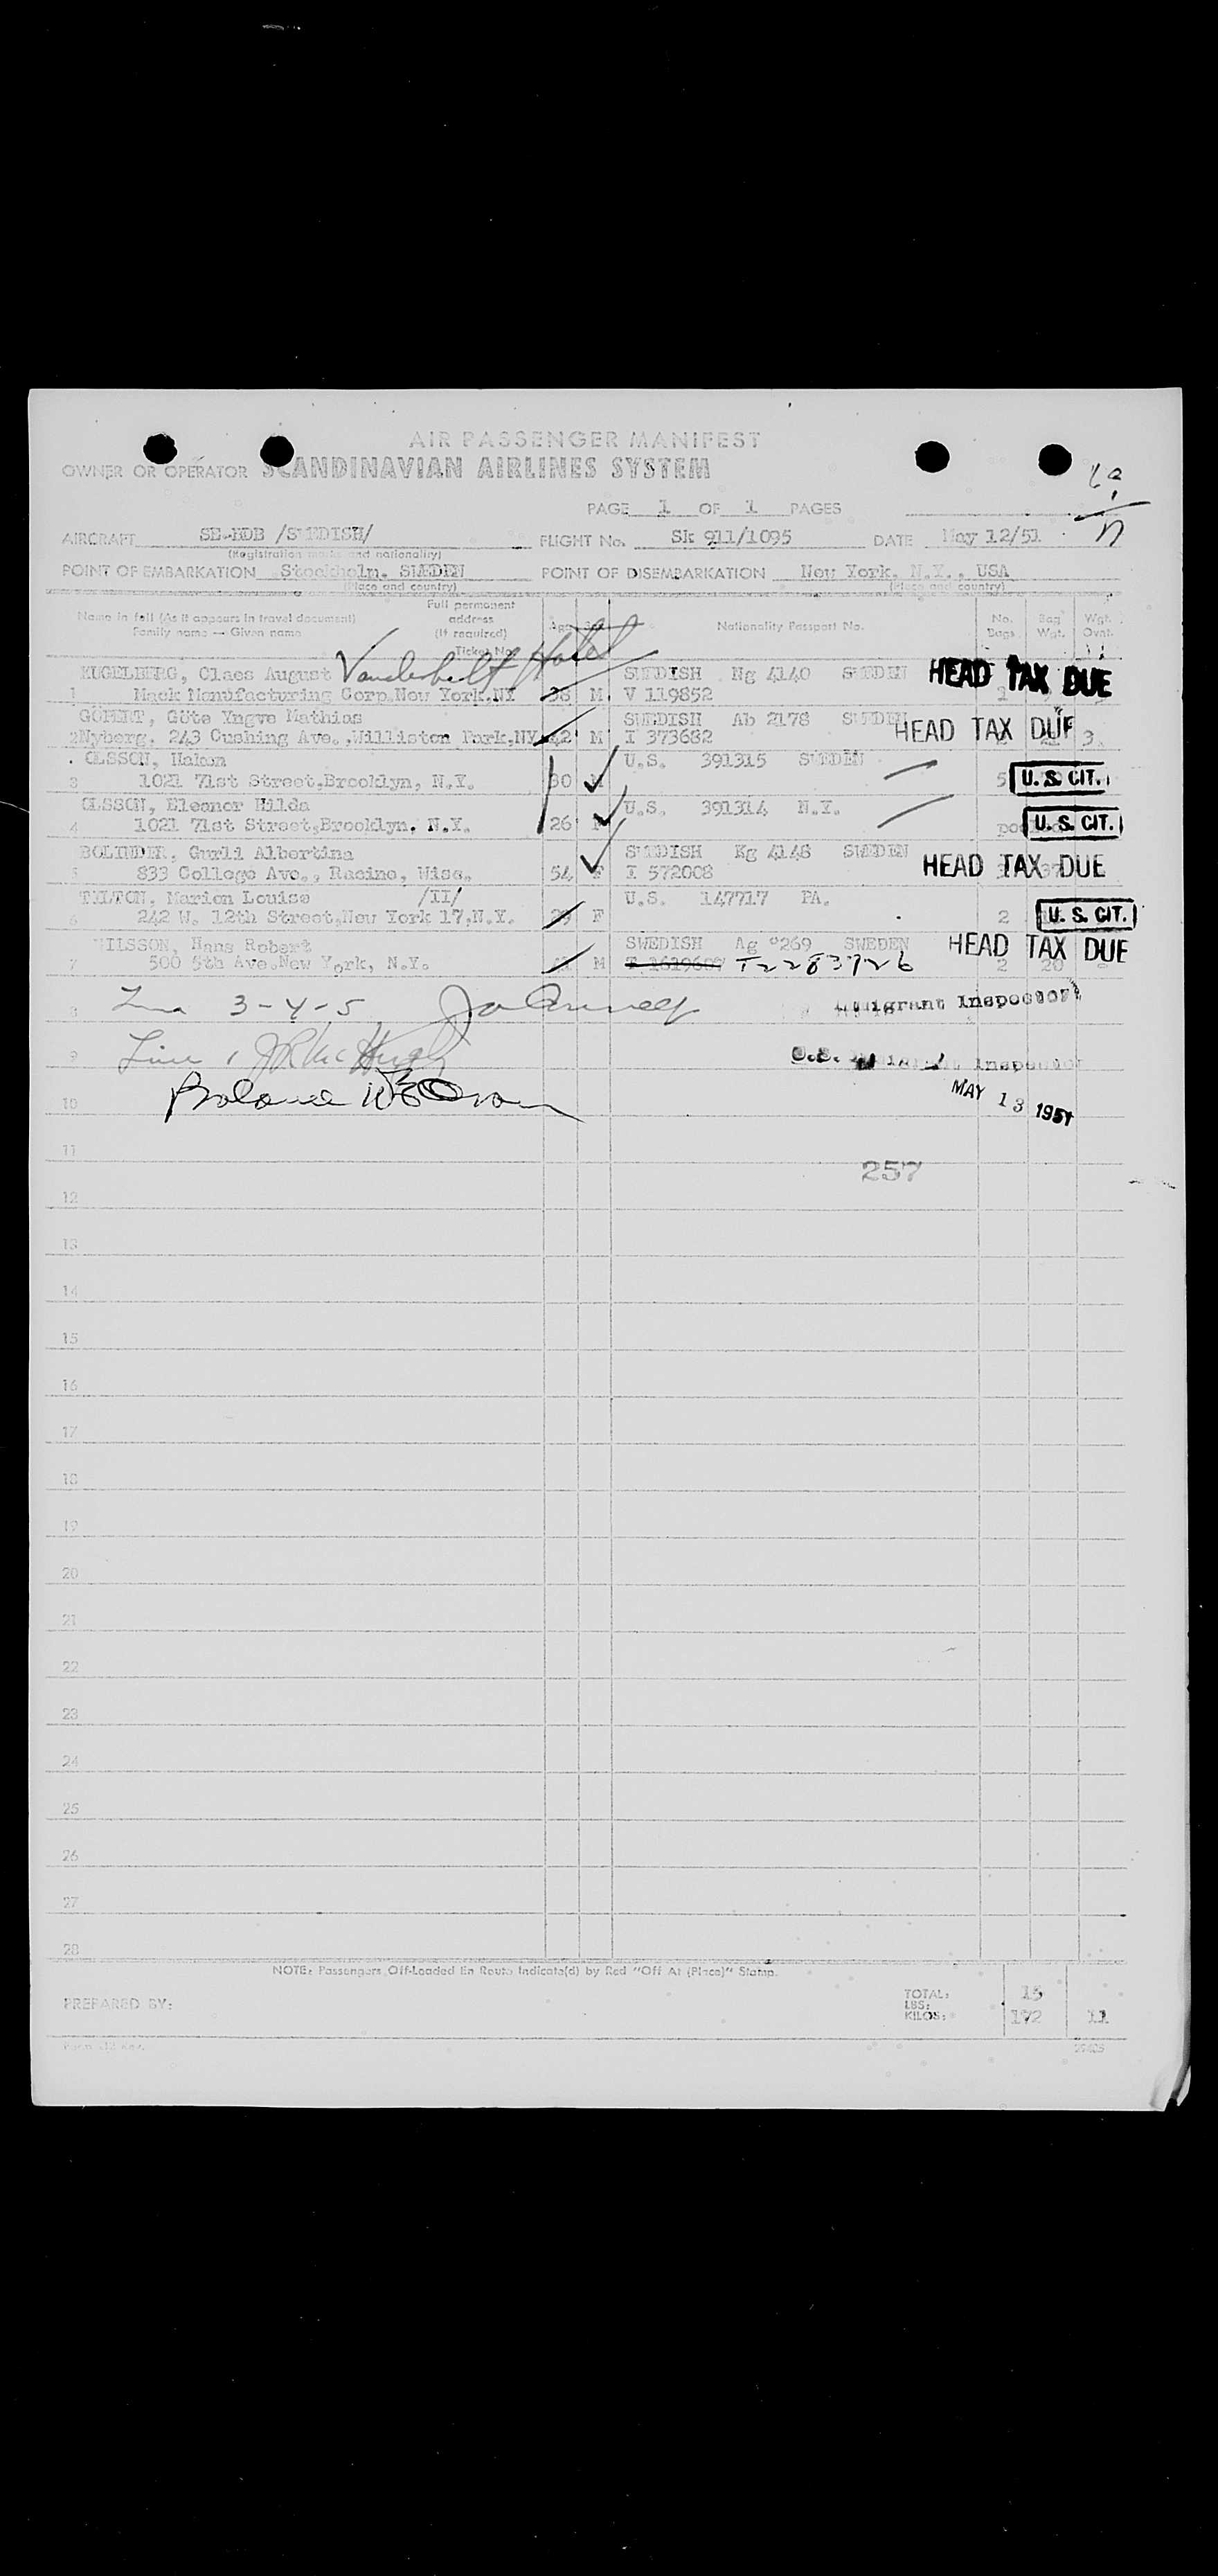 AIR PASSENGER MANIFEST
OWNER OR OPERATOR SCANDINAVIAN AIRLINES SYSTEM
PAGE 1 OF 1 PAGES
AIRCRAFT SE-BDB /SWEDISH/ FLIGHT No. Sk 911/1095 DATE May 12/51
(Registration marks and nationality)
POINT OF EMBARKATION Stockholm, SWEDEN POINT OF DISEMBARKATION New York, N.Y., USA
(Place and country) (Place and country)
Name in full (As it appears in travel document) Family name — Given name
Full permanent address (If required) Ticket No.
Age Sex Nationality Passport No. No. Bags Bag Wgt. Wgt. Ovnt.
Vanderbilt Hotel
Claes August SWEDISH Ng 4140 SWEDEN HEAD TAX DUE
1 Mack Manufacturing Corp, New York, NY 38 M V 119852
Göte Yngve Mathias SWEDISH Ab 2178 SWEDEN HEAD TAX DUE
2 Nyberg, 243 Cushing Ave., Williston Park, NY 42 M I 373682 3
OLSSON, Hakon U.S. 391315 SWEDEN
3 1021 71st Street, Brooklyn, N.Y. 30 M 5 U.S. CIT.
OLSSON, Eleanor Hilda U.S. 391314 N.Y.
4 1021 71st Street, Brooklyn, N.Y. 26 F U.S. CIT.
BOLINDER, Gurli Albertina SWEDISH Kg 4148 SWEDEN HEAD TAX DUE
5 833 College Ave., Racine, Wisc. 54 F I 572008
TILTON, Marion Louise /II/ U.S. 147717 PA.
6 242 W. 12th Street, New York 17, N.Y. F 2 U.S. CIT.
NILSSON, Hans Robert SWEDISH Ag SWEDEN HEAD TAX DUE
7 500 5th Ave. New York, N.Y. M T2283926 2 20
8 3-4-5 Immigrant Inspector
9 Line 1 JR McHugh U.S. Immigrant Inspector
10 MAY 13 1951
11
257
12
13
14
15
16
17
18
19
20
21
22
23
24
25
26
27
28
NOTE: Passengers Off-Loaded En Route Indicate(d) by Red "Off At (Place)" Stamp.
PREPARED BY:
TOTAL: 15
LBS:
KILOS: 172 11